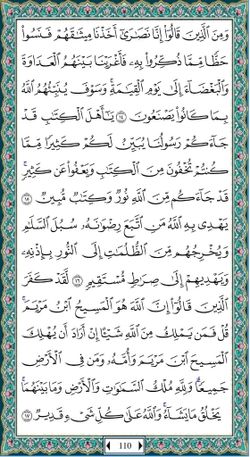 وَمِنَ ٱلَّذِينَ قَالُوٓا۟ إِنَّا نَصَٰرَىٰٓ أَخَذْنَا مِيثَٰقَهُمْ فَنَسُوا۟
حَظًّا مِّمَّا ذُكِّرُوا۟ بِهِۦ فَأَغْرَيْنَا بَيْنَهُمُ ٱلْعَدَاوَةَ
وَٱلْبَغْضَآءَ إِلَىٰ يَوْمِ ٱلْقِيَٰمَةِ ۚ وَسَوْفَ يُنَبِّئُهُمُ ٱللَّهُ
بِمَا كَانُوا۟ يَصْنَعُونَ ١٤ يَٰٓأَهْلَ ٱلْكِتَٰبِ قَدْ
جَآءَكُمْ رَسُولُنَا يُبَيِّنُ لَكُمْ كَثِيرًا مِّمَّا
كُنتُمْ تُخْفُونَ مِنَ ٱلْكِتَٰبِ وَيَعْفُوا۟ عَن كَثِيرٍ ۚ
قَدْ جَآءَكُم مِّنَ ٱللَّهِ نُورٌ وَكِتَٰبٌ مُّبِينٌ ١٥
يَهْدِى بِهِ ٱللَّهُ مَنِ ٱتَّبَعَ رِضْوَٰنَهُۥ سُبُلَ ٱلسَّلَٰمِ
وَيُخْرِجُهُم مِّنَ ٱلظُّلُمَٰتِ إِلَى ٱلنُّورِ بِإِذْنِهِۦ
وَيَهْدِيهِمْ إِلَىٰ صِرَٰطٍ مُّسْتَقِيمٍ ١٦ لَّقَدْ كَفَرَ
ٱلَّذِينَ قَالُوٓا۟ إِنَّ ٱللَّهَ هُوَ ٱلْمَسِيحُ ٱبْنُ مَرْيَمَ ۚ
قُلْ فَمَن يَمْلِكُ مِنَ ٱللَّهِ شَيْـًٔا إِنْ أَرَادَ أَن يُهْلِكَ
ٱلْمَسِيحَ ٱبْنَ مَرْيَمَ وَأُمَّهُۥ وَمَن فِى ٱلْأَرْضِ
جَمِيعًا ۗ وَلِلَّهِ مُلْكُ ٱلسَّمَٰوَٰتِ وَٱلْأَرْضِ وَمَا بَيْنَهُمَا ۚ
يَخْلُقُ مَا يَشَآءُ ۚ وَٱللَّهُ عَلَىٰ كُلِّ شَىْءٍ قَدِيرٌ ١٧
110